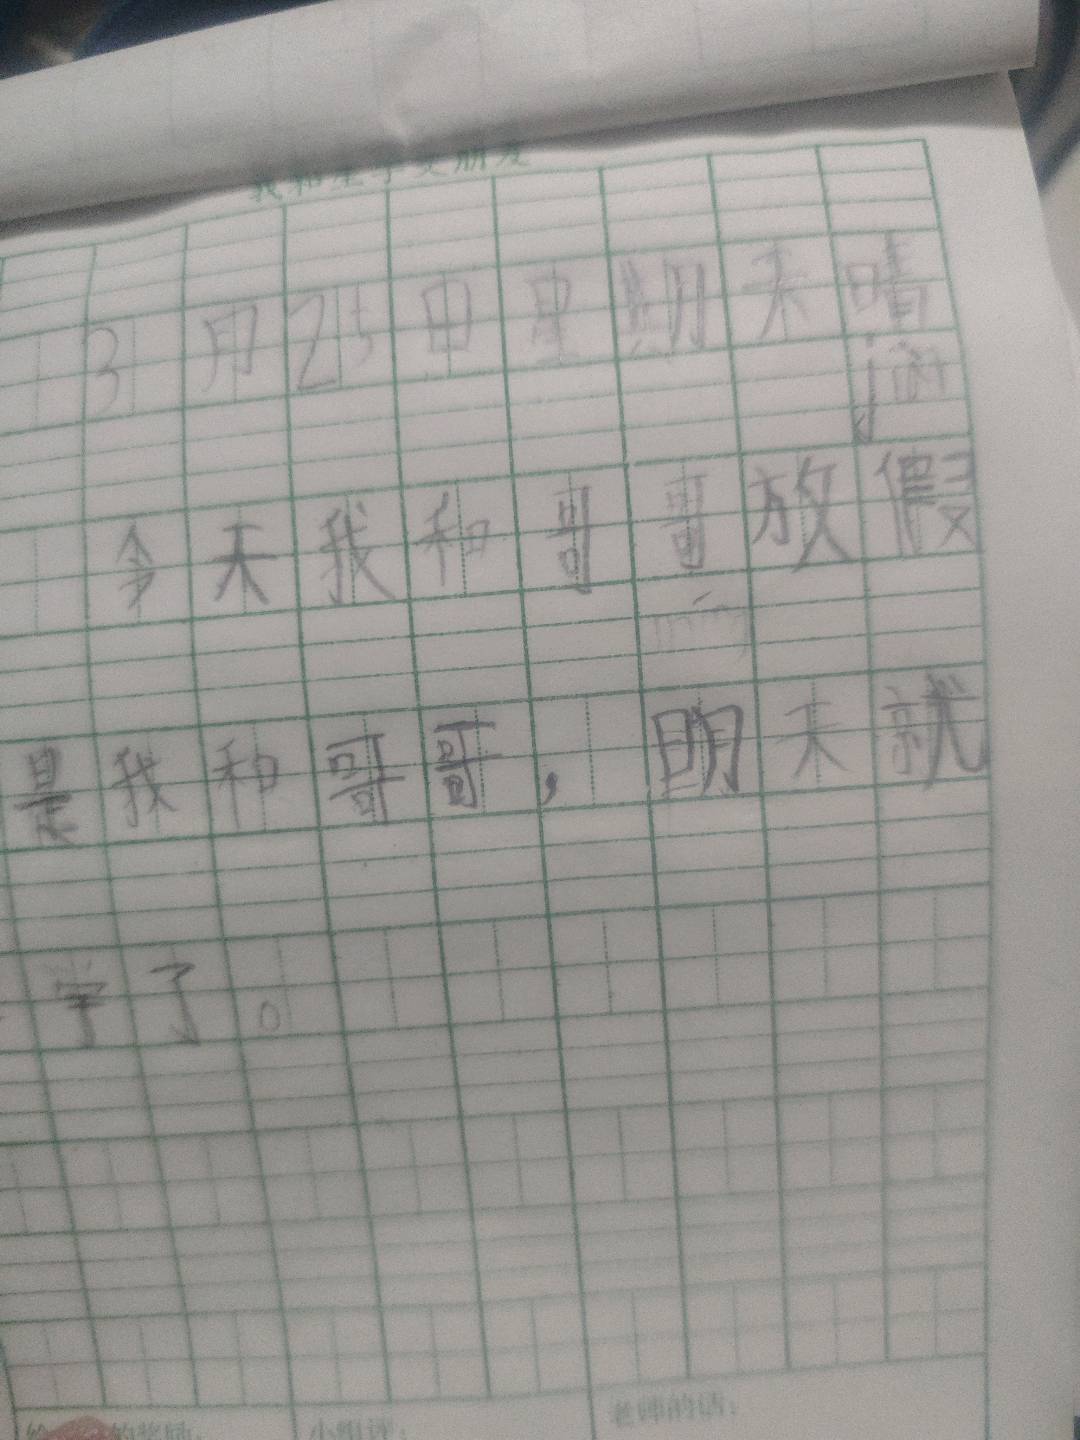 我和生字交朋友
3月25日星期天晴
今天我和哥哥放假
是我和哥哥，明天就
学了。
小组评：
老师的话：